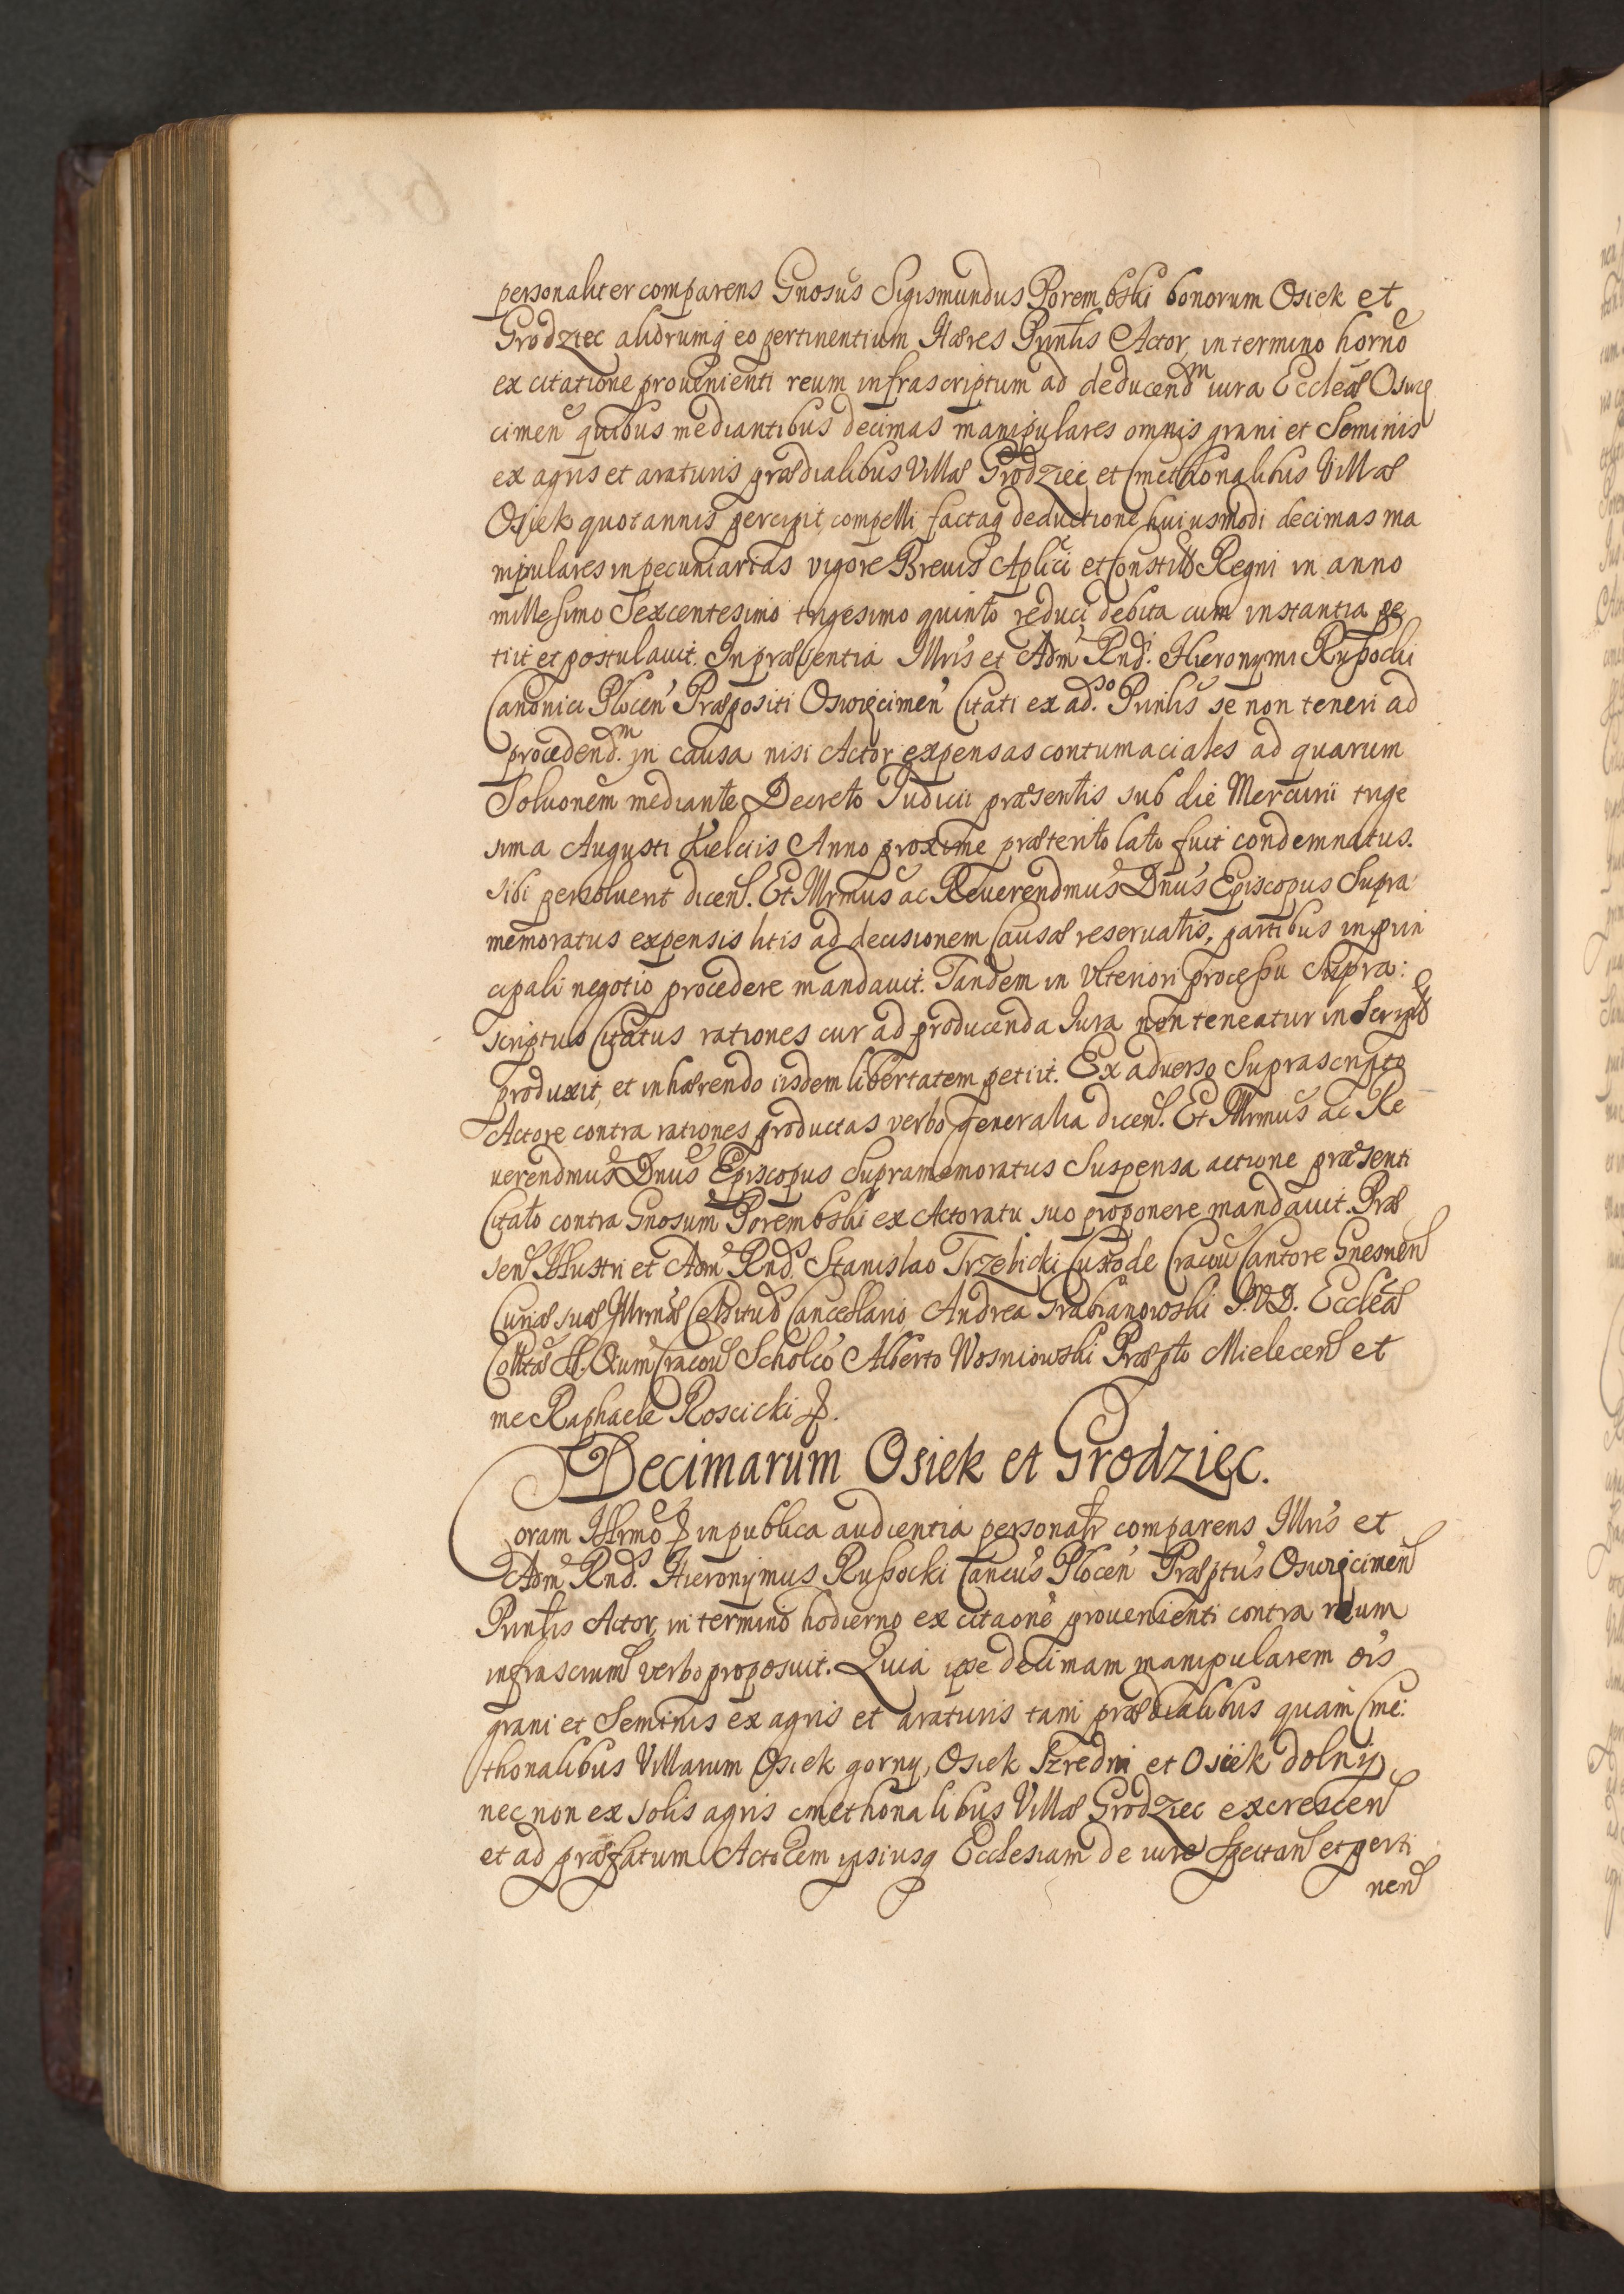 personaliter comparens Gnosus Sigismundus Porembski bonorum Osiek et
Grodziec aliorumq eo pertinentium Hæres Prinlis Actor, in termino horno
ex citatione prouenienti reum infrascriptum ad deducendm iura Eccleæ Oswię
cimen quibus mediantibus decimas manipulares omnis grani et Seminis
ex agris et araturis prædialibus Villæ Grodziec et Cmethonalibus Villæ
Osiek quotannis percipit, compelli factaq deductione huiusmodi decimas ma
nipulares in pecuniarias vigore Breuis Aplici et Constitto Regni in anno
millesimo Sexcentesimo trigesimo quinto reduci debita cum instantia pe
tiit et postulauit. In præsentia Illris et Adm Rnd. Hieronymi Rußocki
Canonici Plocen Præpositi Oswięcimen Citati ex adso. Prinlis se non teneri ad
procedendm. in causa nisi Actor expensas contumaciales ad quarum
Soluonem mediante Decreto Iudicii præsentis sub die Mercurii trige
sima Augusti Kielciis Anno proxime præterito lato fuit condemnatus.
sibi persoluerit dicen. Et Illrmus ac Reuerendmus Dnus Episcopus Supra
memoratus expensis litis ad decisionem Causæ reseruatis, partibus in prin
cipali negotio procedere mandauit. Tandem in Vlteriori processu Supra:
scriptus Citatus rationes cur ad producenda Iura non teneatur in Scripto
produxit, et inhærendo iisdem libertatem petiit. Ex aduerso Suprascripto
Actore contra rationes productas verbo generalia dicen. Et Illrmus ac Re
uerendmus Dnus Episcopus Supramemoratus Suspensa actione præsenti
Citato contra Gnosum Porembski ex Actoratu suo proponere mandauit. Præ
sen Illustri et Adm Rnds. Stanislao Trzebicki Custode Cracou Cantore Gnesnen
Curiæ suæ Illrmæ Celsitud Cancellario Andrea Grabianowski I.V.D. Eccleæ
Colltæ SS. Oium Cracou Scholco Alberto Wosniowski Præpto Mielecen et
me Raphaele Roscicki
Decimarum Osiek et Grodziec.
Coram Illrmo in publica audientia personaltr comparens Illris et
Adm Rnds. Hieronymus Rußocki Cancus Plocen Præptus Oswięcimen
Prinlis Actor, in termino hodierno ex citaone prouenienti contra reum
infrascrum verbo proposuit. Quia ipse decimam manipularem ois
grani et Seminis ex agris et araturis tam prædialibus quam Cme:
thonalibus Villarum Osiek gorny, Osiek Szredni et Osiek dolny,
nec non ex solis agris cmethonalibus Villæ Grodziec excrescen
et ad præfatum Actorem ipsiusq Ecclesiam de iure spectan et perti
nen